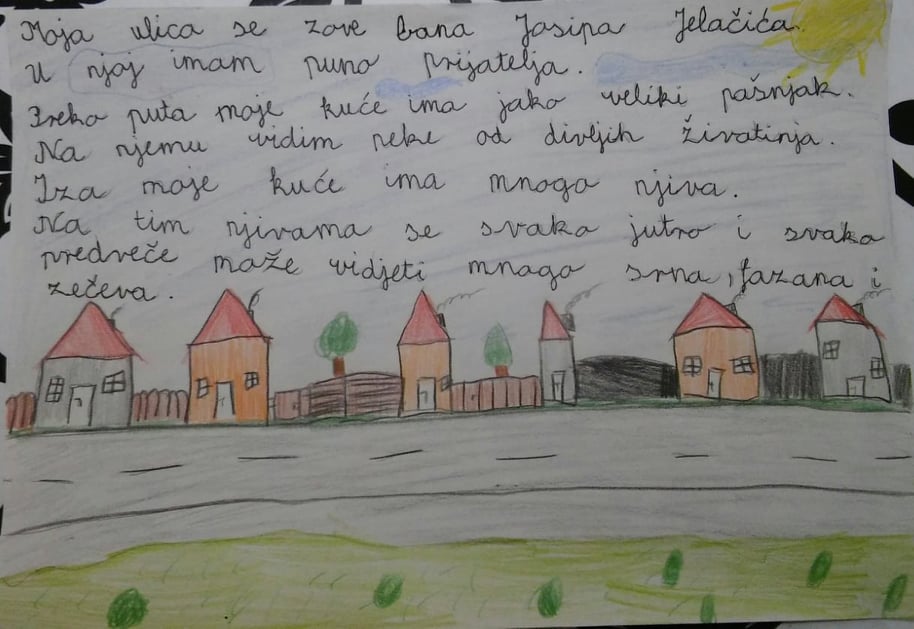 Moja ulica se zove bana Josipa Jelačića.
U njoj imam puno prijatelja.
Preko puta moje kuće ima jako veliki pašnjak.
Na njemu vidim neke od divljih životinja.
Iza moje kuće ima mnogo njiva.
Na tim njivama se svako jutro i svako
predveče može vidjeti mnogo srna, fazana i
zečeva.